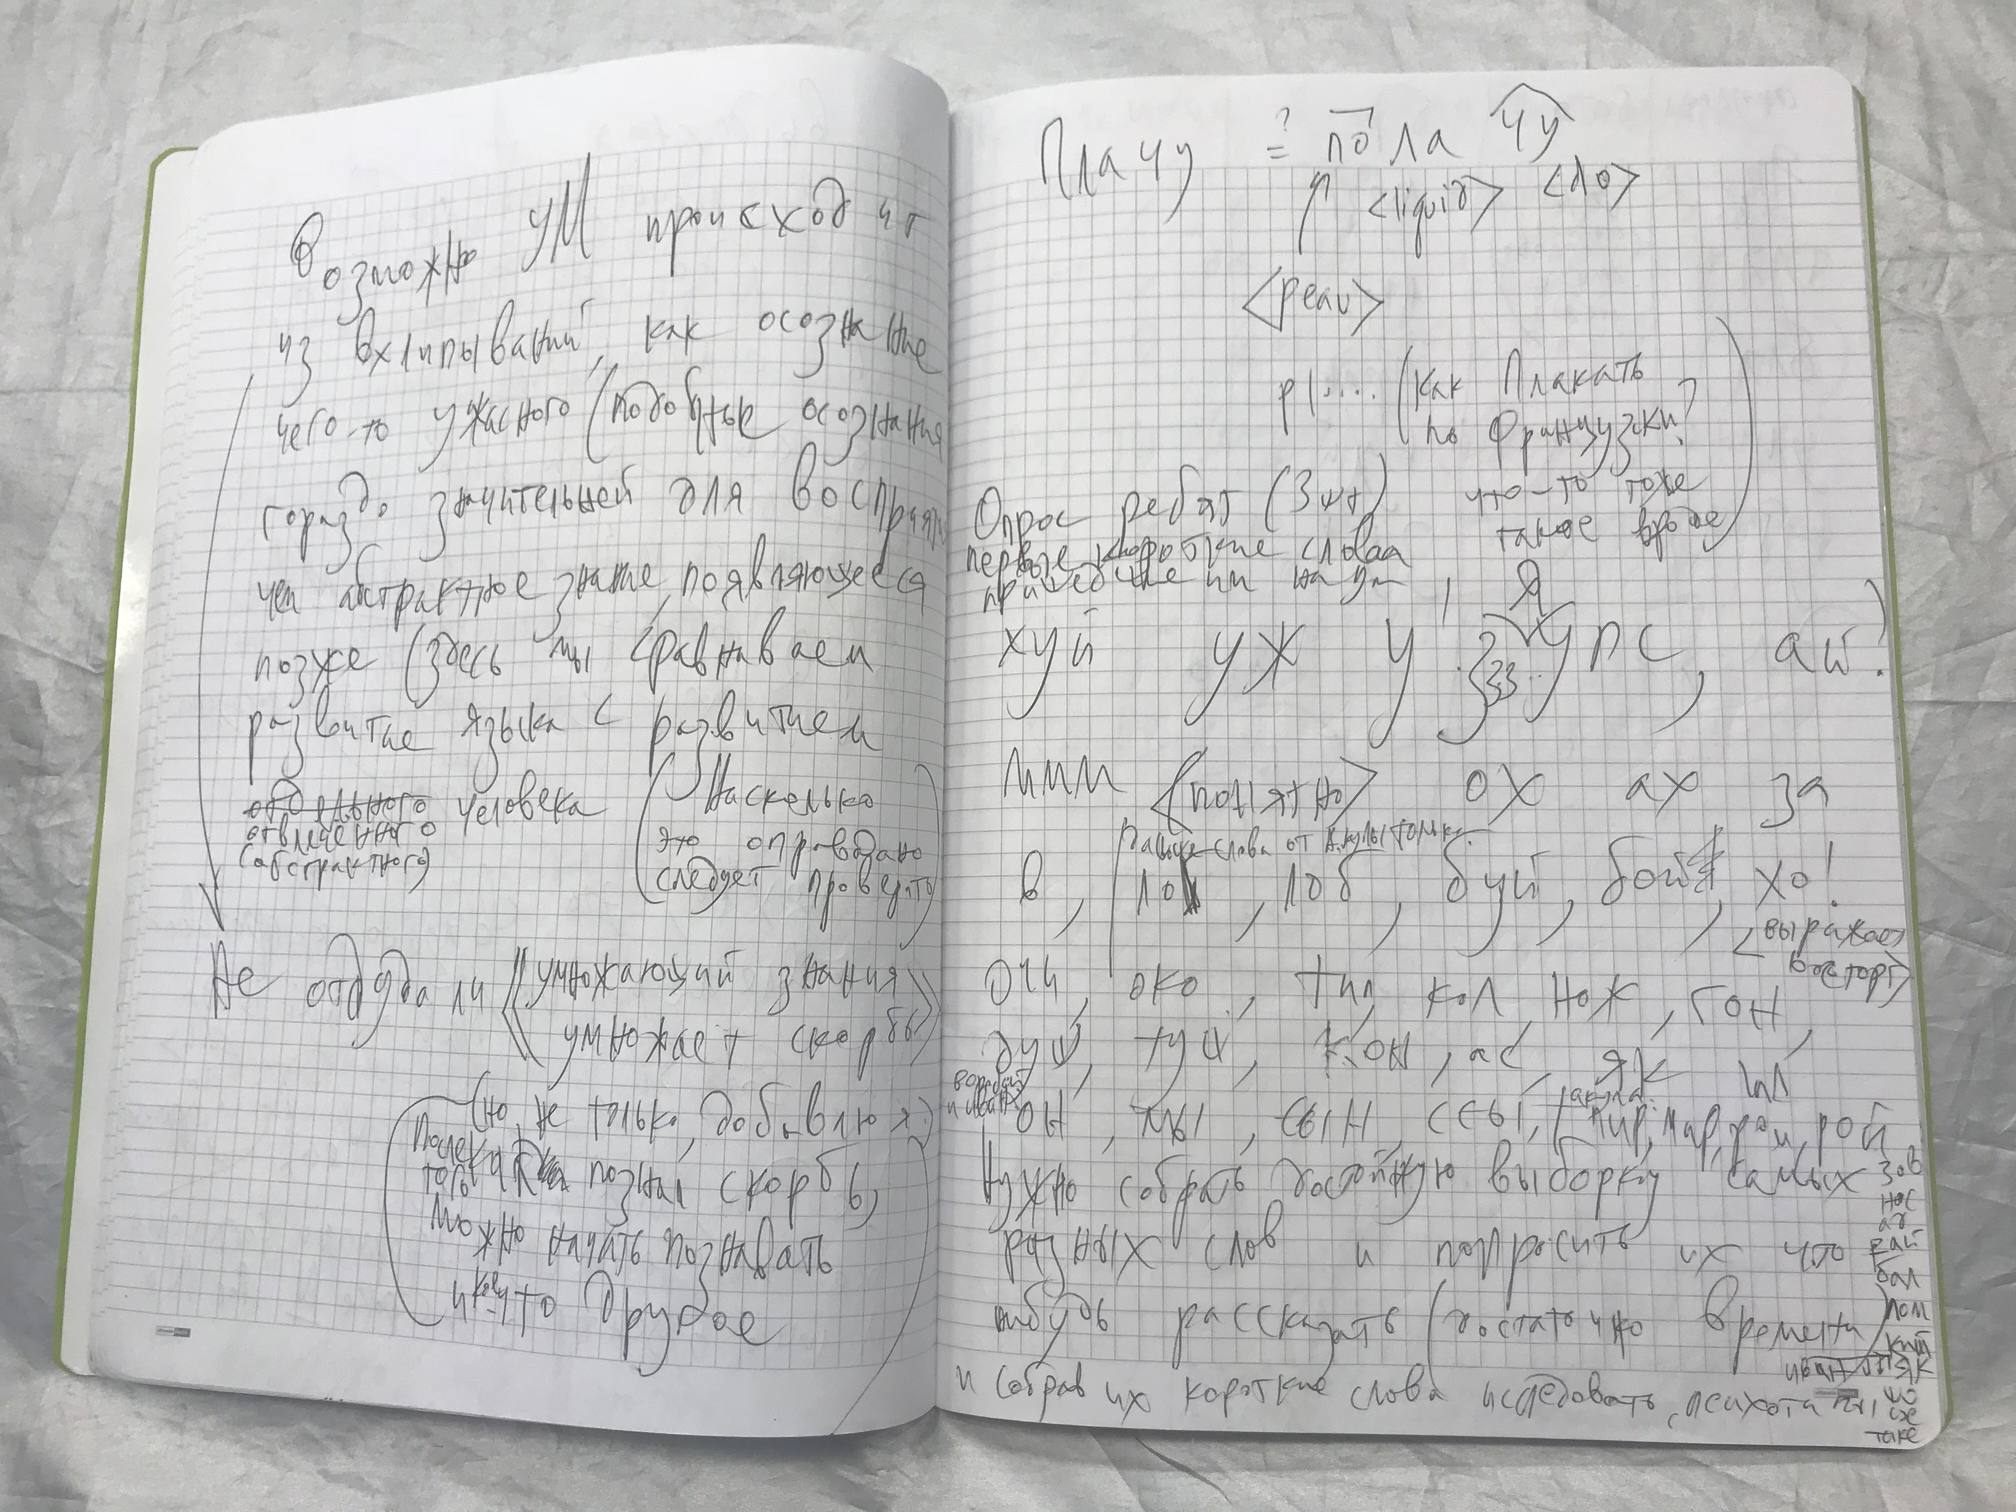 Возможно УМ происходит
из вхлипываний, как осознание
чего-то ужасного (подобные осознания
гораздо значительней для восприяти
чем абстрактное знание, появляющееся
позже (здесь мы сравниваем
развитие языка с развитием
отдельного человека
отвлеченного
(абстрактного)
(Насколько
это оправдано
следует проверить)
Не отсюда ли «умножающий знания
умножает скорбь»
(но, не только, добавлю я:)
После
того как познал скорбь,
можно начать познавать
и кое-что другое
Плачу =? по ла чу
<liquid> <ло>
<peau>
pl.... (как плакать
по французски?
что-то тоже
такое вроде)
Опрос ребят (3 шт)
первые короткие слова
пришедшие им на ум
хуй уж у! я упс, ай?
ммм <понятно> ох ах за
Раньше слова от Акулы только
в, лоб, буй, бой, хо!
<выражает
восторг>
очи, око, тил, кол, нож, гон,
душ, туш, кон, ас, як, ил
он, мы, сын, ссы, / акула: пир, мар, ром, рой
Нужно собрать достойную выборку самых
разных слов и попросить их что
нибудь рассказать (достаточно времени)
и собрав их короткие слова исследовать, психотип
зов
нос
рай
бал
лом
кий
як
же
таке